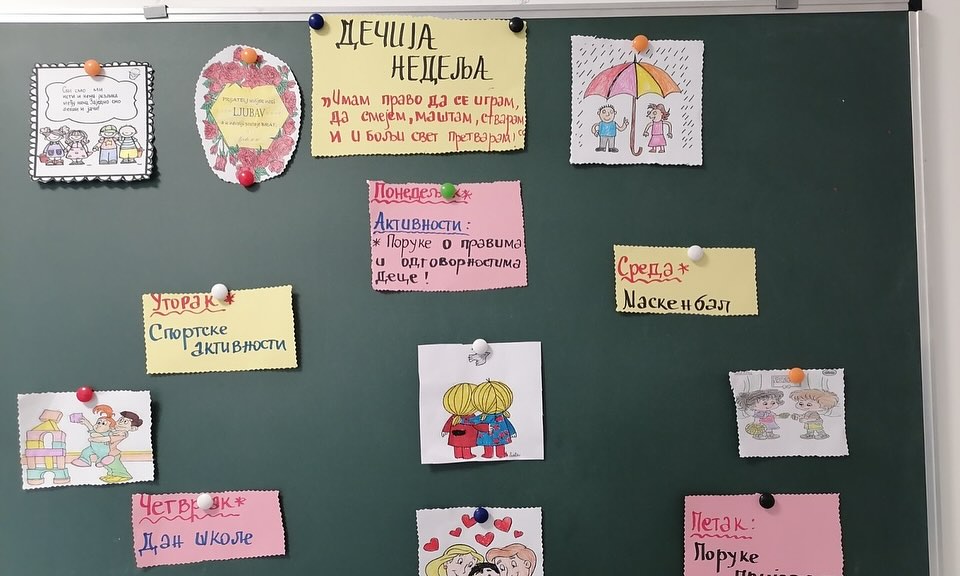 ДЕЧИЈА
НЕДЕЉА
„Имам право да се играм,
да смејем, маштам, стварам
и и бољи свет претварам!“
LJUBAV
Понедељак*
Активности:
* Поруке о правима
и одговорностима
деце!
Среда*
Маскенбал
Уторак*
Спортске
активности
Четвртак*
Дан школе
Петак:
Поруке